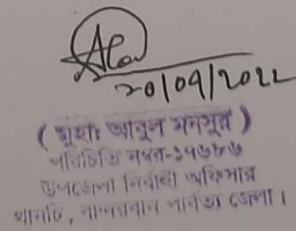 20/09/2022
(মুহাঃ আবুল মনসুর)
পরিচিতি নম্বর-১৭৬৮৬
উপজেলা নির্বাহী অফিসার
থানচি, বান্দরবান পার্বত্য জেলা।